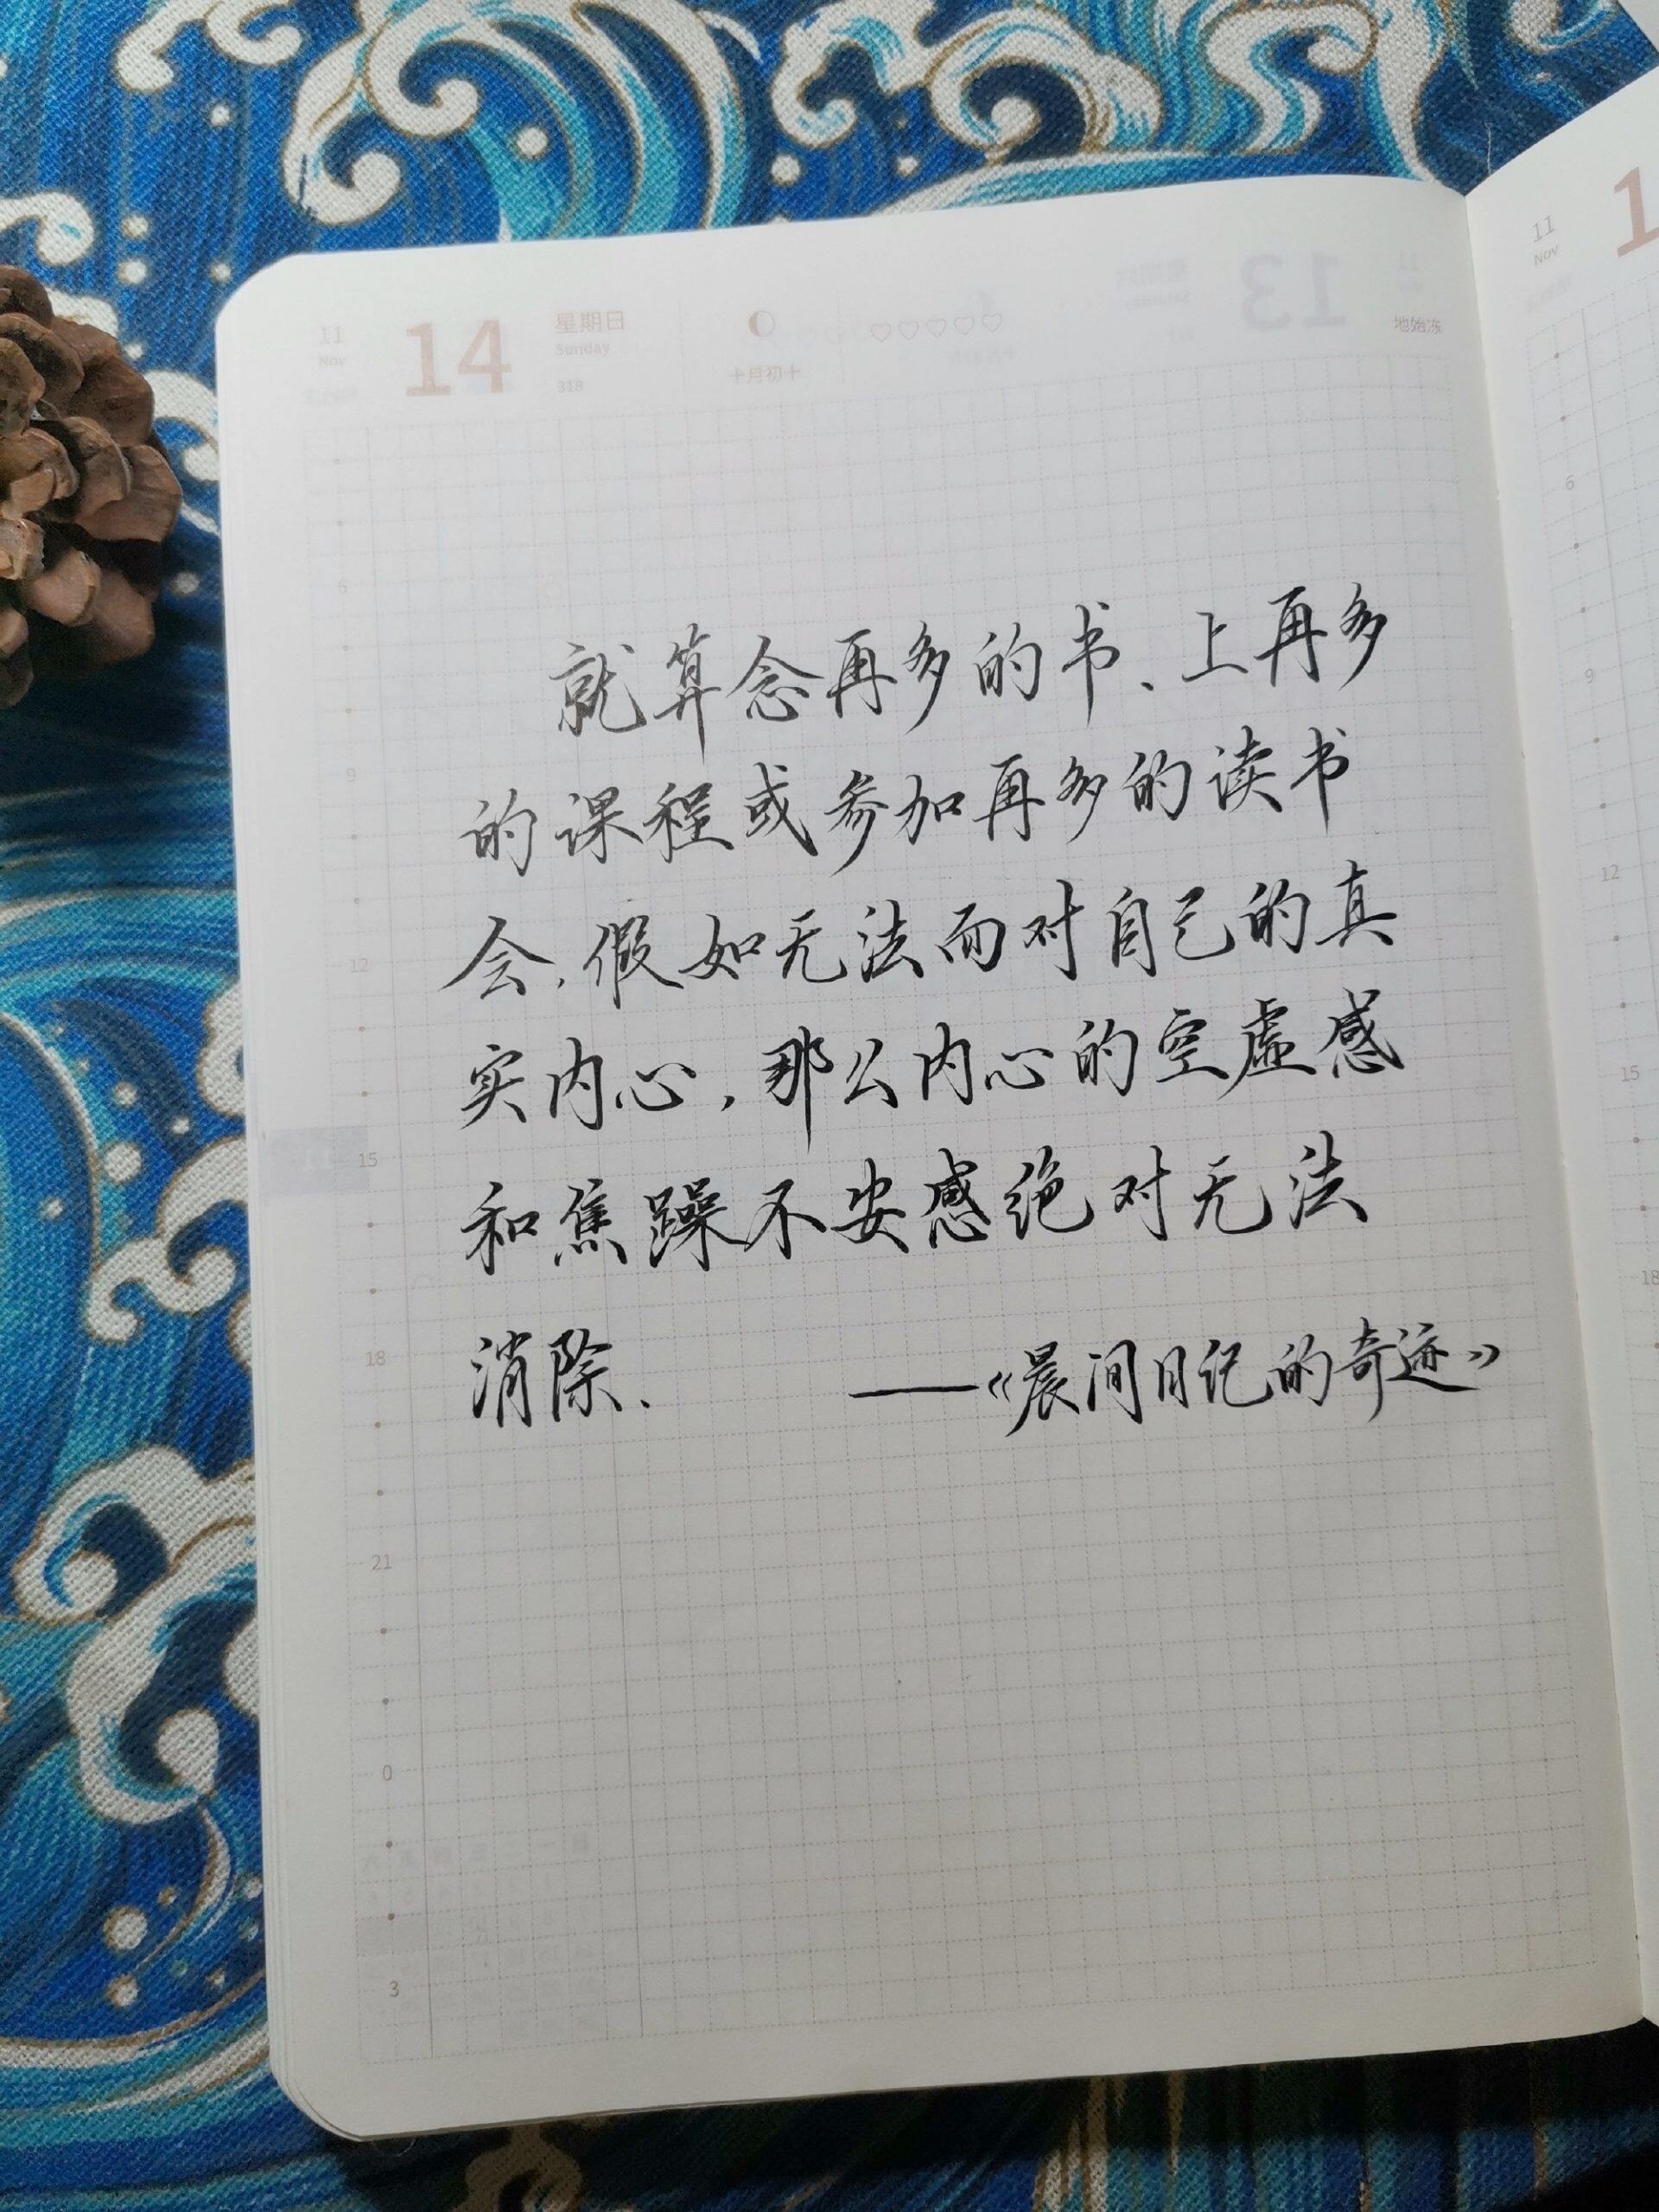 11
Nov
14
星期日
Sunday
318
十月初十
地始冻
就算念再多的书、上再多
的课程或参加再多的读书
会,假如无法面对自己的真
实内心,那么内心的空虚感
和焦躁不安感绝对无法
消除.
——《晨间日记的奇迹》
6
9
12
15
18
21
0
3
11
Nov
1
6
9
12
15
18